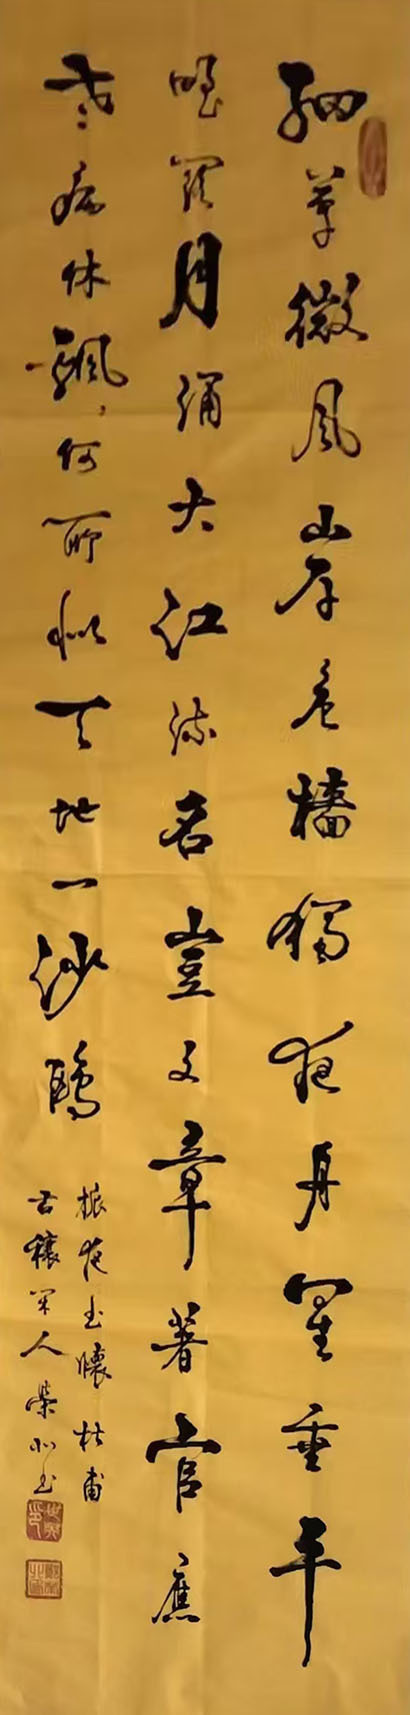 細草微風岸危檣獨夜舟星垂平
野闊月涌大江流名豈文章著官應
老病休飄飄何所似天地一沙鷗
旅夜書懷杜甫
古穰人書